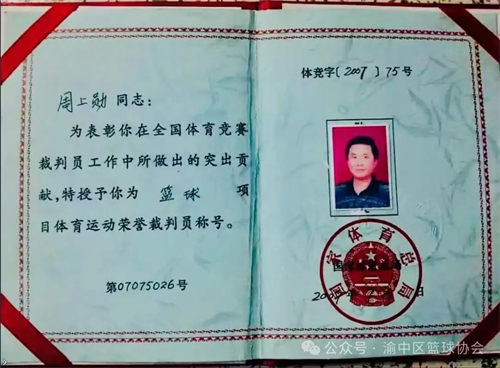 周上勋 同志：
为表彰你在全国体育竞赛
裁判员工作中所做出的突出贡
献,特授予你为 篮球 项
目体育运动荣誉裁判员称号。
第07075026号
体竞字〔2007〕75号
国家体育总局
日
公众号·渝中区篮球协会